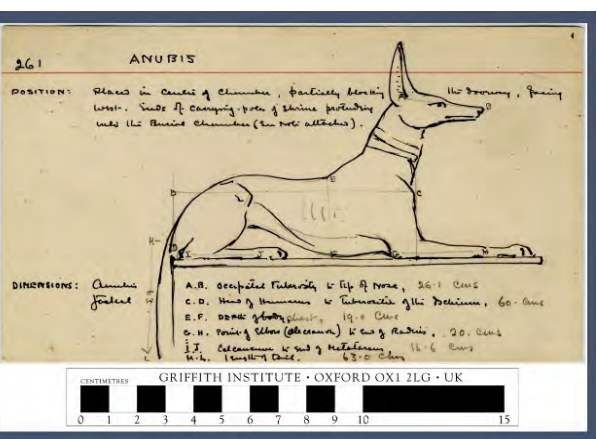 261 ANUBIS
POSITION: Placed in center of Chamber, partially blocking the doorway, facing
West. Ends of carrying-poles of shrine protruding
into the Burial Chamber (See note attached).
B
A
D E C
H
D I J F G M
DIMENSIONS: Anubis
Jackal
A.B. Occipital Tuberosity to tip of Nose, 26.1 Cms
C.D. Head of Humerus to Tuberosity of the Ischium, 60. Cms
E.F. Depth of body chest, 19.0 Cms
G.H. Point of Elbow (olecranon) to end of Radius, 20. Cms
I.J. Calcaneum to end of Metatarsus, 16.6 Cms
K.L. length of tail. 63.0 Cms
L
CENTIMETRES GRIFFITH INSTITUTE · OXFORD OX1 2LG · UK
0 1 2 3 4 5 6 7 8 9 10 15